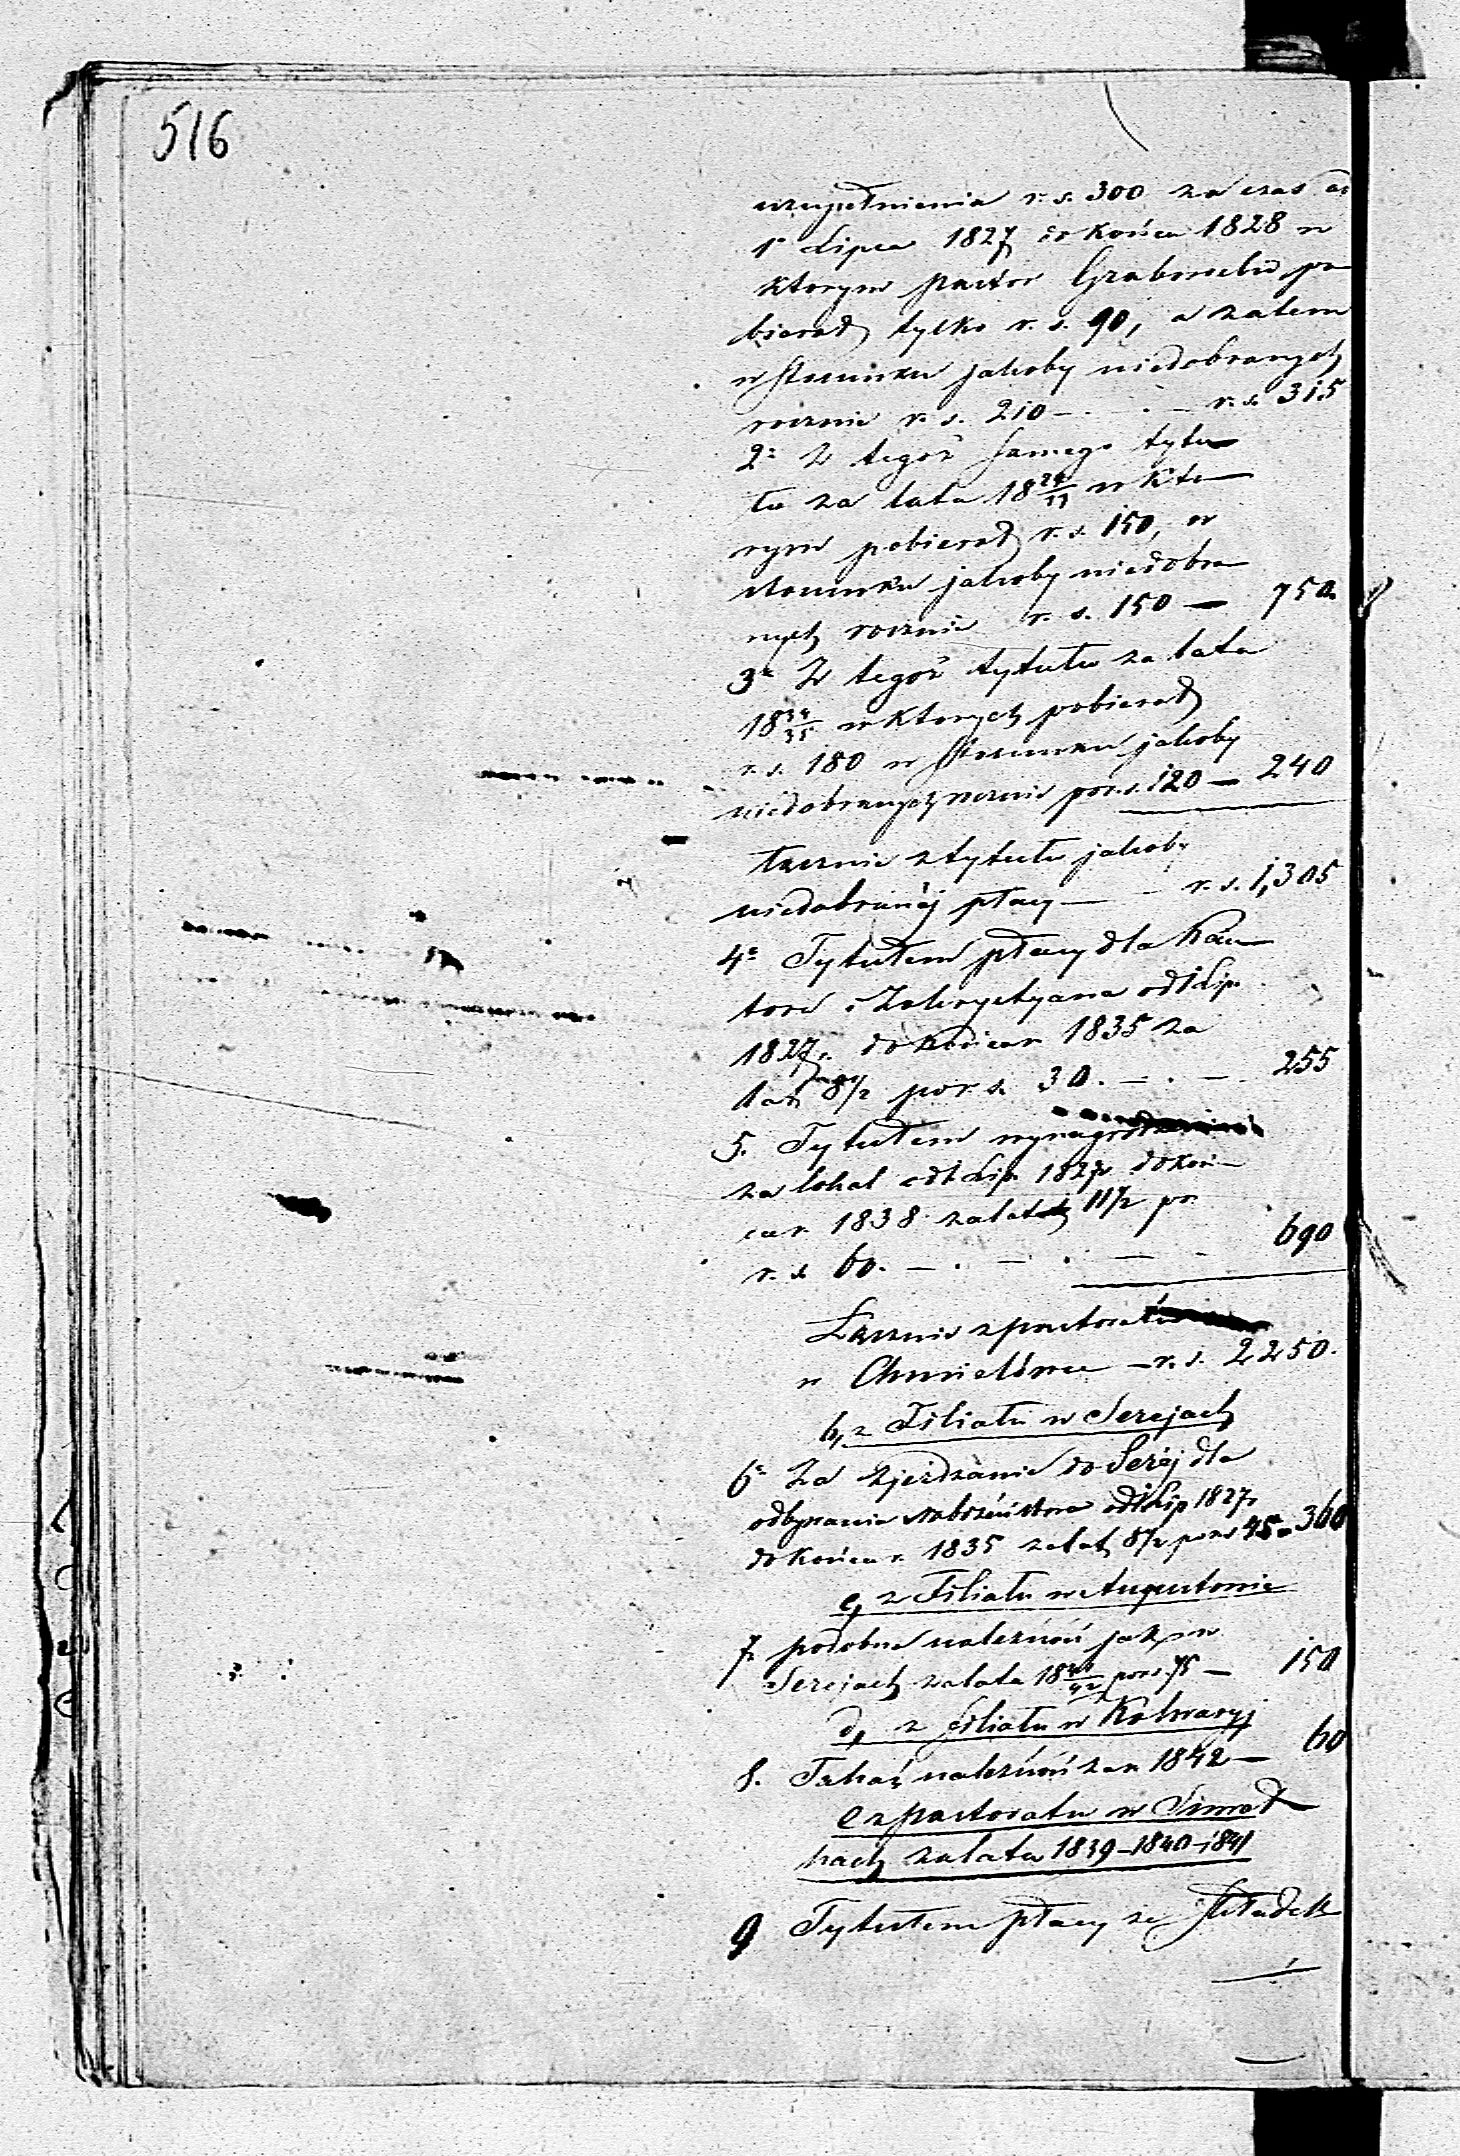 516
uzupełnienia r. s. 300 za czas od
1° Lipca 1827 do końca 1828 w
ktorym pastor Grabowski po
bierał tylko r. s. 90, a zatem
w stosunku jakoby niedobranych
rocznie r. s. 210 — . — r. s. 315
2° Z tegoż samego tytu
łu za lata 18 29/33 w kto
rym pobierał r. s. 150, w
stosunku jakoby niedobra
nych rocznie r. s. 150 — 750
3° Z tegoż tytułu za lata
18 34/35 w ktorych pobierał
r. s. 180 w stosunku jakoby
niedobranych rocznie po r. s. 120 — 240
łącznie z tytułu jakoby
niedobranéj płacy — — r. s. 1,305
4° Tytułem płacy dla Kan
tora i Zakrystyana od 1 Lip.
1827 r. do końca r. 1835 za
lat 8 1/2 po r. s. 30. — . — . 255
5. Tytułem wynagrodzenia
za lokal od 1 Lip. 1827 r. do koń
ca r. 1838 za lat 11 1/2 po
r. s. 60. — . — . — 690
Łącznie z pastoratu
w Chmielówce — r. s. 2250.
b, z Filiału w Serejach
6° Za zjeżdzanie do Seréj dla
odbywania nabożeństwa od 1 Lip 1827 r.
do końca r. 1835 za lat 8 1/2 po r. s. 45 — 360
c, z Filiału w Augustowie
7. podobna należność jak w
Serejach za lata 18 /42 po r. s. 75 — 150
d, z filiału w Kalwaryj
8. Takaż należność za r. 1842 — 60
e z pastoratu w
za lata 1839 – 1840 – 1841
9 Tytułem płacy ze składek